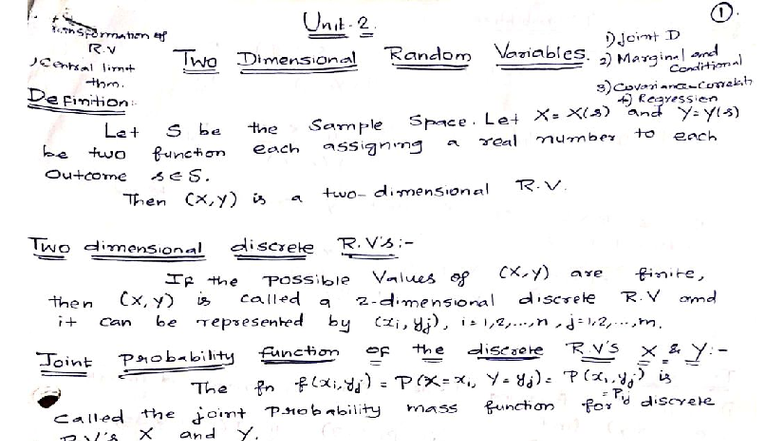 Unit-2
①.
Transformation of
R.V
1) Joint D
, Central limt
thm.
Two Dimensional Random Variables.
2) Marginal and
Conditional
3) Covariance-Correlatn
4) Regression
Definition:
Let S be the Sample Space. Let X = X(s) and Y = Y(s)
be two function each assigning a real number to each
Outcome s ∈ S.
Then (X,Y) is a two-dimensional R.V.
Two dimensional discrete R.V's:-
If the possible Values of (X,Y) are finite,
then (X,Y) is called a 2-dimensional discrete R.V and
it can be represented by (xi, yj), i=1,2,...,n, j=1,2,...,m.
Joint Probability function of the discrete R.V's X & Y:-
The fn f(xi,yj) = P(X=xi, Y=yj) = P(xi,yj) is
= Pij
Called the joint Probability mass function for discrete
R.V's X and Y.